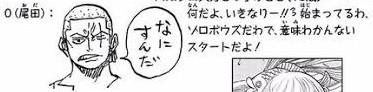 O(尾田): 何だよ、いきなりー!!うろ始まってるわ、
ゾロボウズだわで、意味わかんない
スタートだよ!
なにすんだ